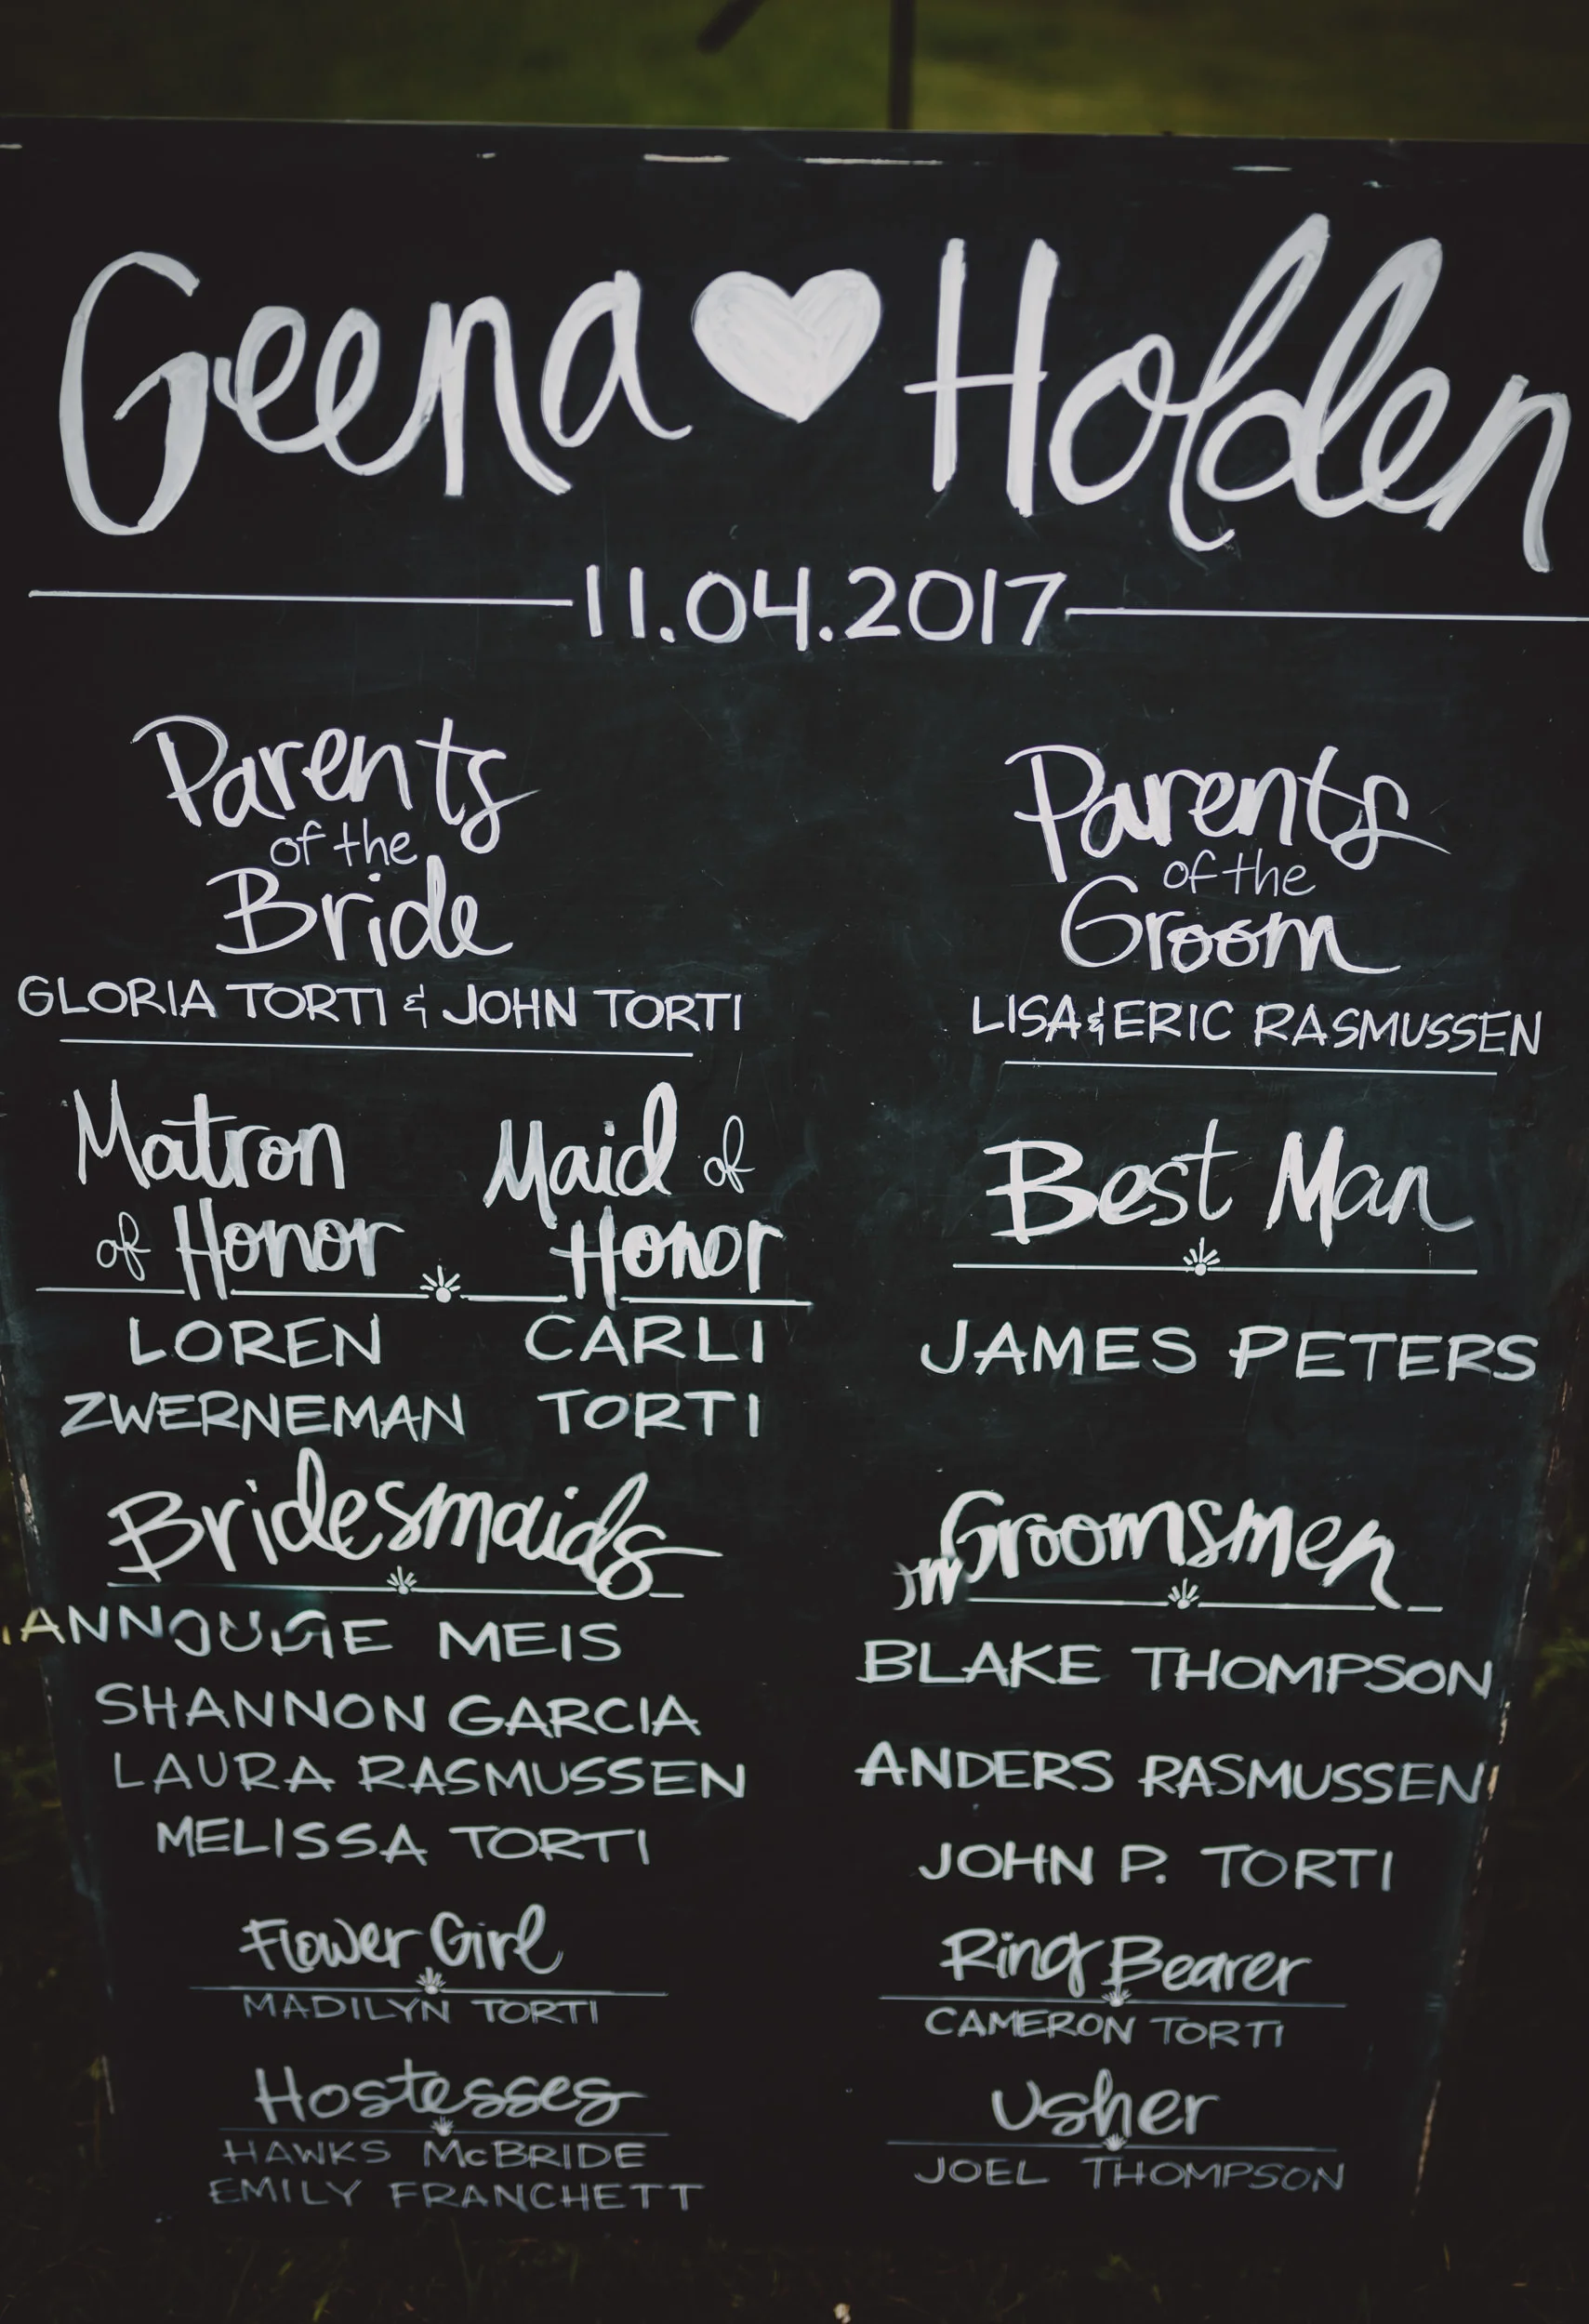 Geena Holden
11.04.2017
Parents
of the
Bride
GLORIA TORTI & JOHN TORTI
Matron
of Honor
Maid of
Honor
LOREN
ZWERNEMAN
CARLI
TORTI
Bridesmaids
MEIS
SHANNON GARCIA
LAURA RASMUSSEN
MELISSA TORTI
Flower Girl
MADILYN TORTI
Hostesses
HAWKS McBRIDE
EMILY FRANCHETT
Parents
of the
Groom
LISA & ERIC RASMUSSEN
Best Man
JAMES PETERS
Groomsmen
BLAKE THOMPSON
ANDERS RASMUSSEN
JOHN P. TORTI
Ring Bearer
CAMERON TORTI
Usher
JOEL THOMPSON